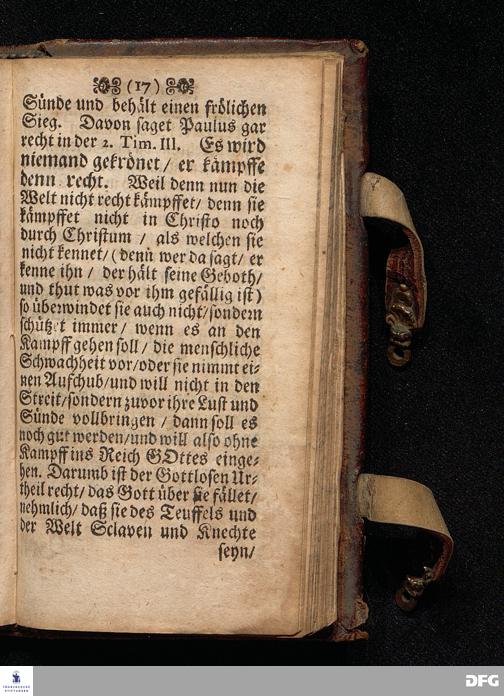 (17)
Sünde und behält einen frölichen
Sieg. Davon saget Paulus gar
recht in der 2. Tim. III. Es wird
niemand gekrönet/ er kämpffe
denn recht. Weil denn nun die
Welt nicht recht kämpffet/ denn sie
kämpffet nicht in Christo noch
durch Christum / als welchen sie
nicht kennet/ (denn wer da sagt/ er
kenne ihn / der hält seine Geboth/
und thut was vor ihm gefällig ist)
so überwindet sie auch nicht/ sondern
schützet immer/ wenn es an den
Kampff gehen soll/ die menschliche
Schwachheit vor/ oder sie nimmt ei-
nen Aufschub/ und will nicht in den
Streit/ sondern zuvor ihre Lust und
Sünde vollbringen / dann soll es
noch gut werden/ und will also ohne
Kampff ins Reich GOttes einge-
hen. Darumb ist der Gottlosen Ur-
theil recht/ das Gott über sie fället/
nehmlich/ daß sie des Teuffels und
der Welt Sclaven und Knechte
seyn/
FRANCKESCHE STIFTUNGEN
DFG